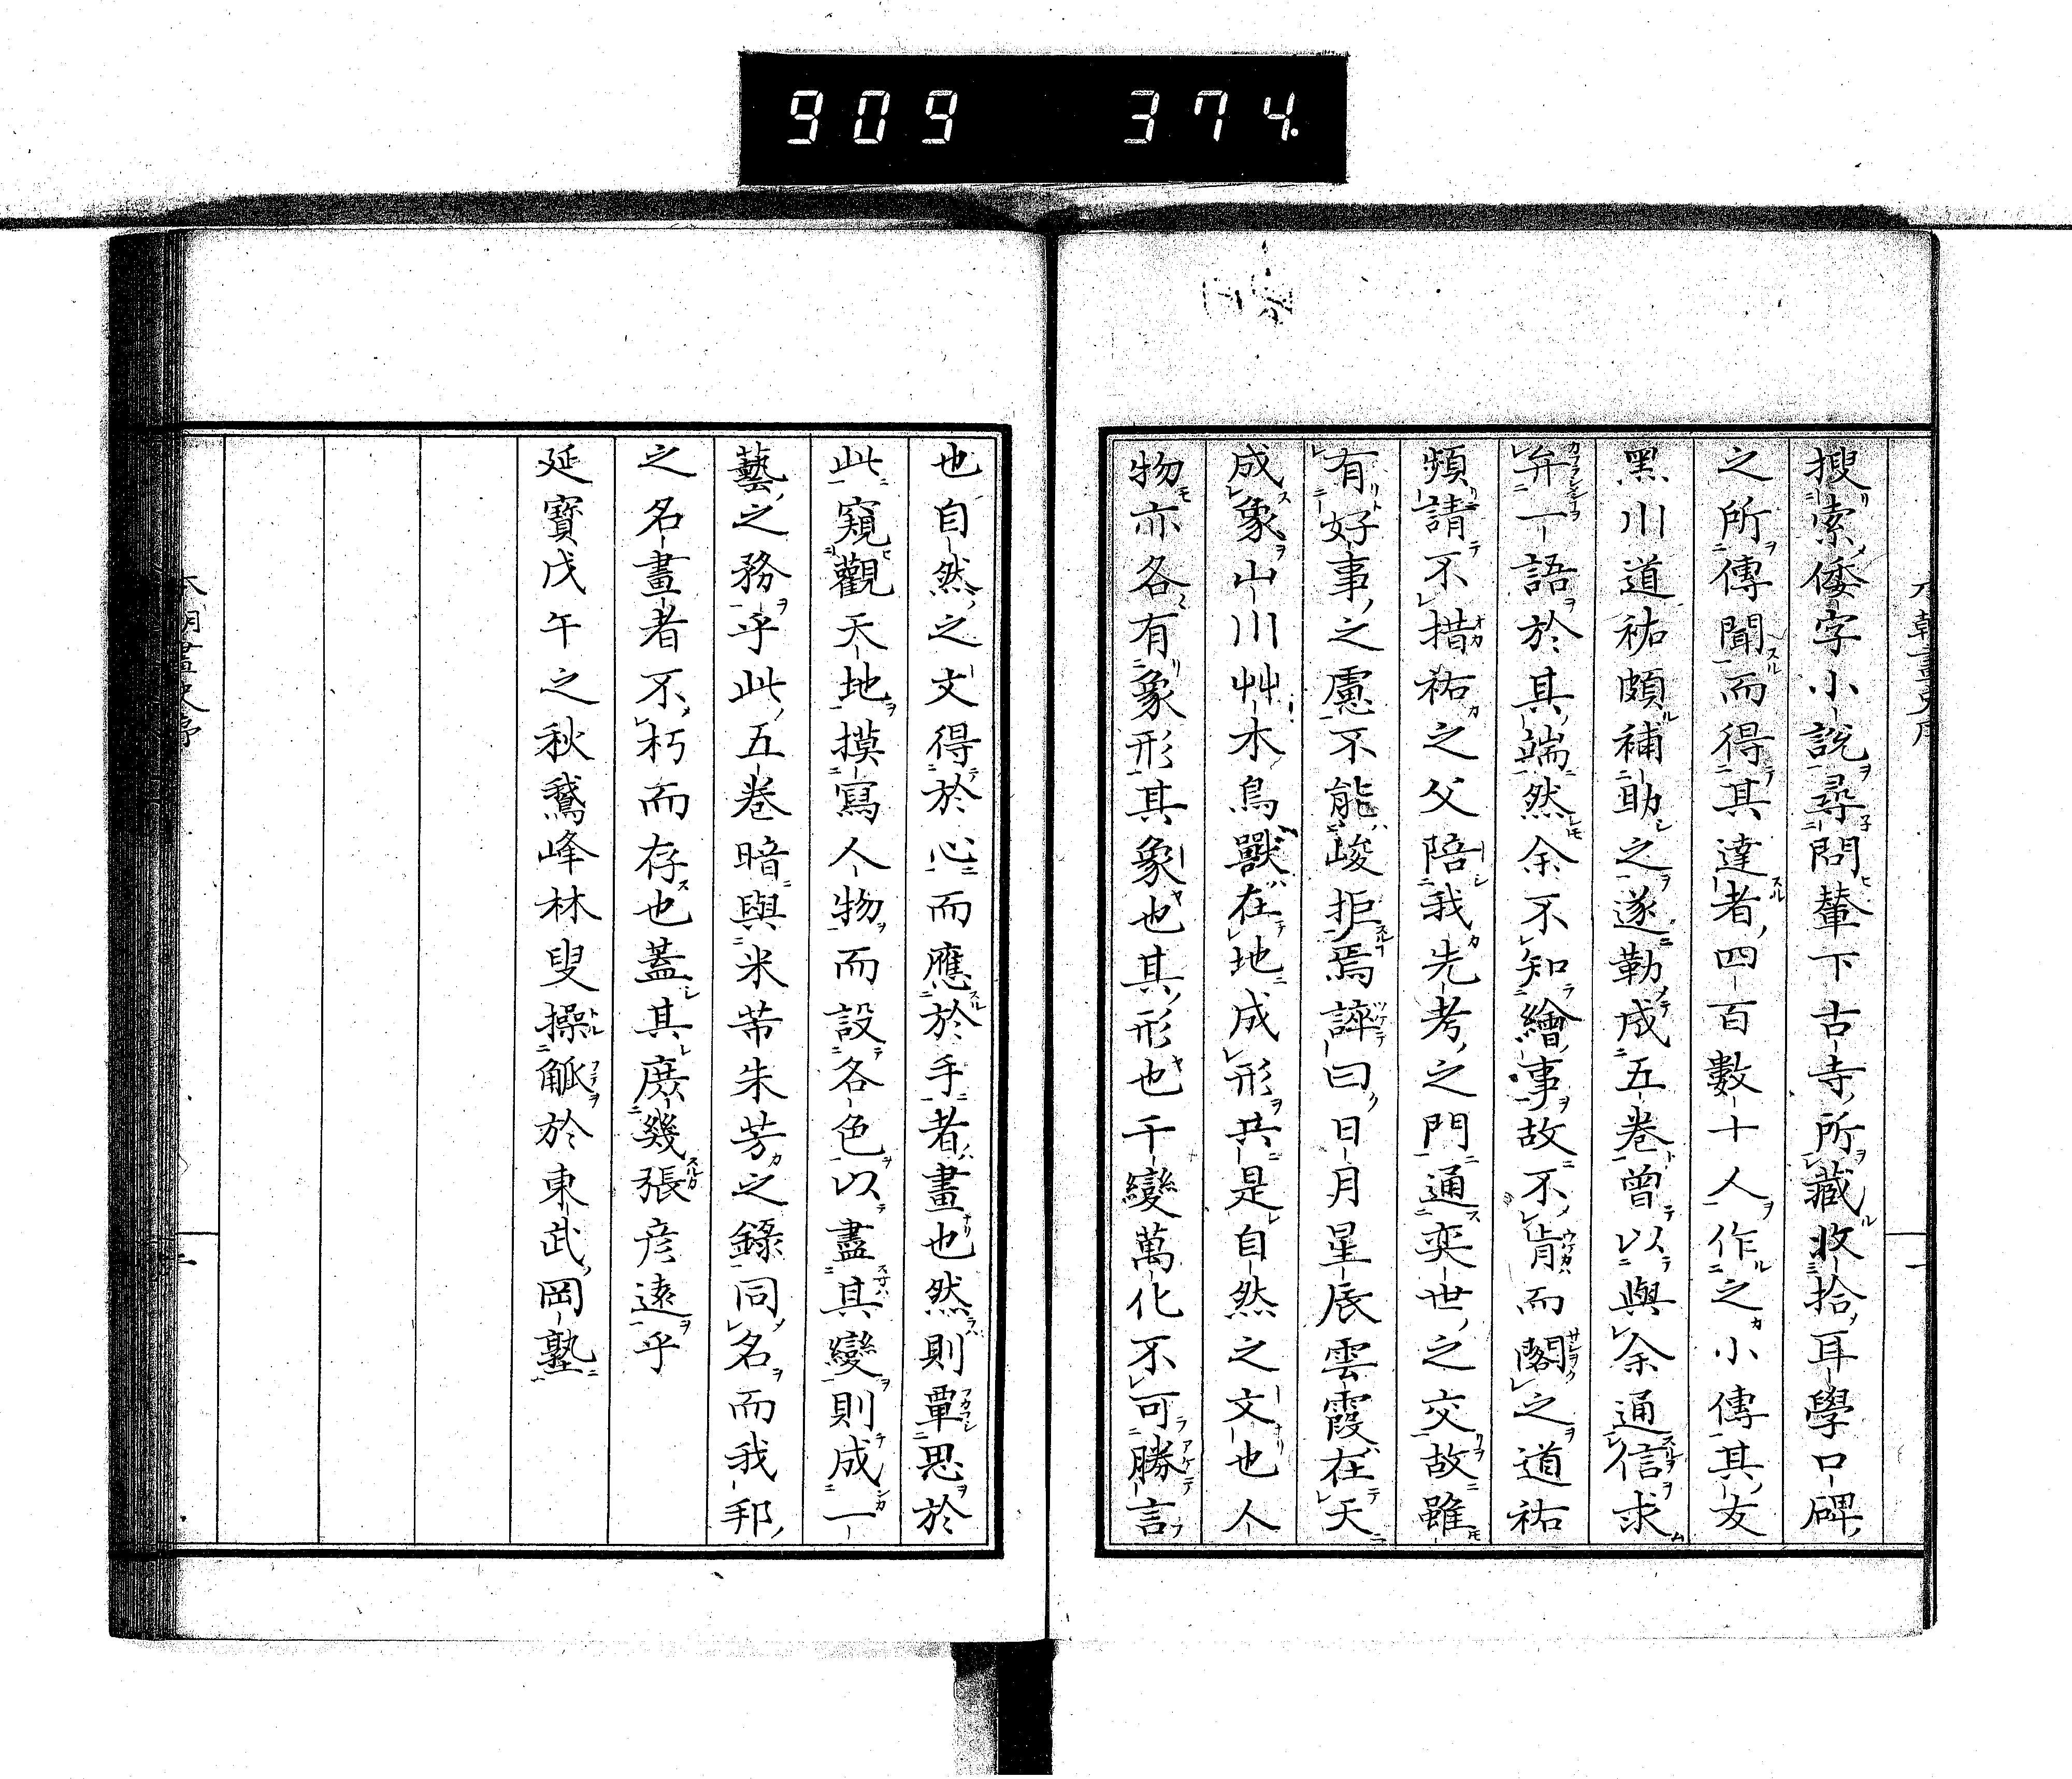 909 374.
搜索倭字小說尋問輦下古寺所藏收拾耳學口碑
之所傳聞而得其達者四百數十人作之小傳其友
黑川道祐頗補助之遂勒成五卷曾以與余通信求
弁一語於其端然余不知繪事故不肯而閣之道祐
頻請不措祐之父陪我先考之門通奕世之交故雖
有好事之慮不能峻拒焉誶曰日月星辰雲霞在天
成象山川艸木鳥獸在地成形共是自然之文也人
物亦各有象形其象也其形也千變萬化不可勝言
也自然之文得於心而應於手者畫也然則覃思於
此窺觀天地摸寫人物而設各色以盡其變則成一
藝之務乎此五卷暗與米芾朱芳之錄同名而我邦
之名畫者不朽而存也蓋其庶幾張彦遠乎
延寶戊午之秋鵞峰林叟操觚於東武岡塾